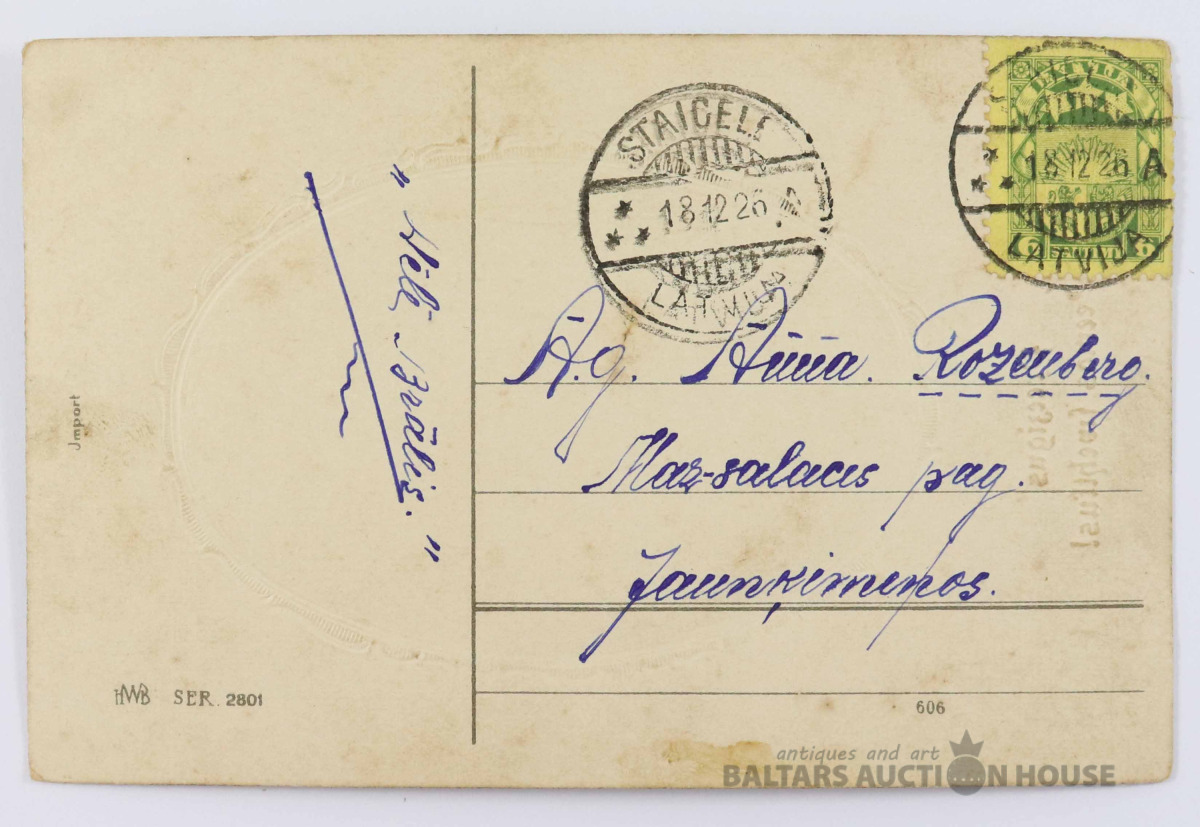 LATVIJA
18.12.26 A
LATVIJA
STAICELE
18.12.26
LATWIJA
" Vēl Brālis. "
A.g. Anna. Rozenberg.
Maz-salacas pag.
Jaunķimeņos.
Import
HWB SER. 2801
606
antiques and art
BALTARS AUCTION HOUSE